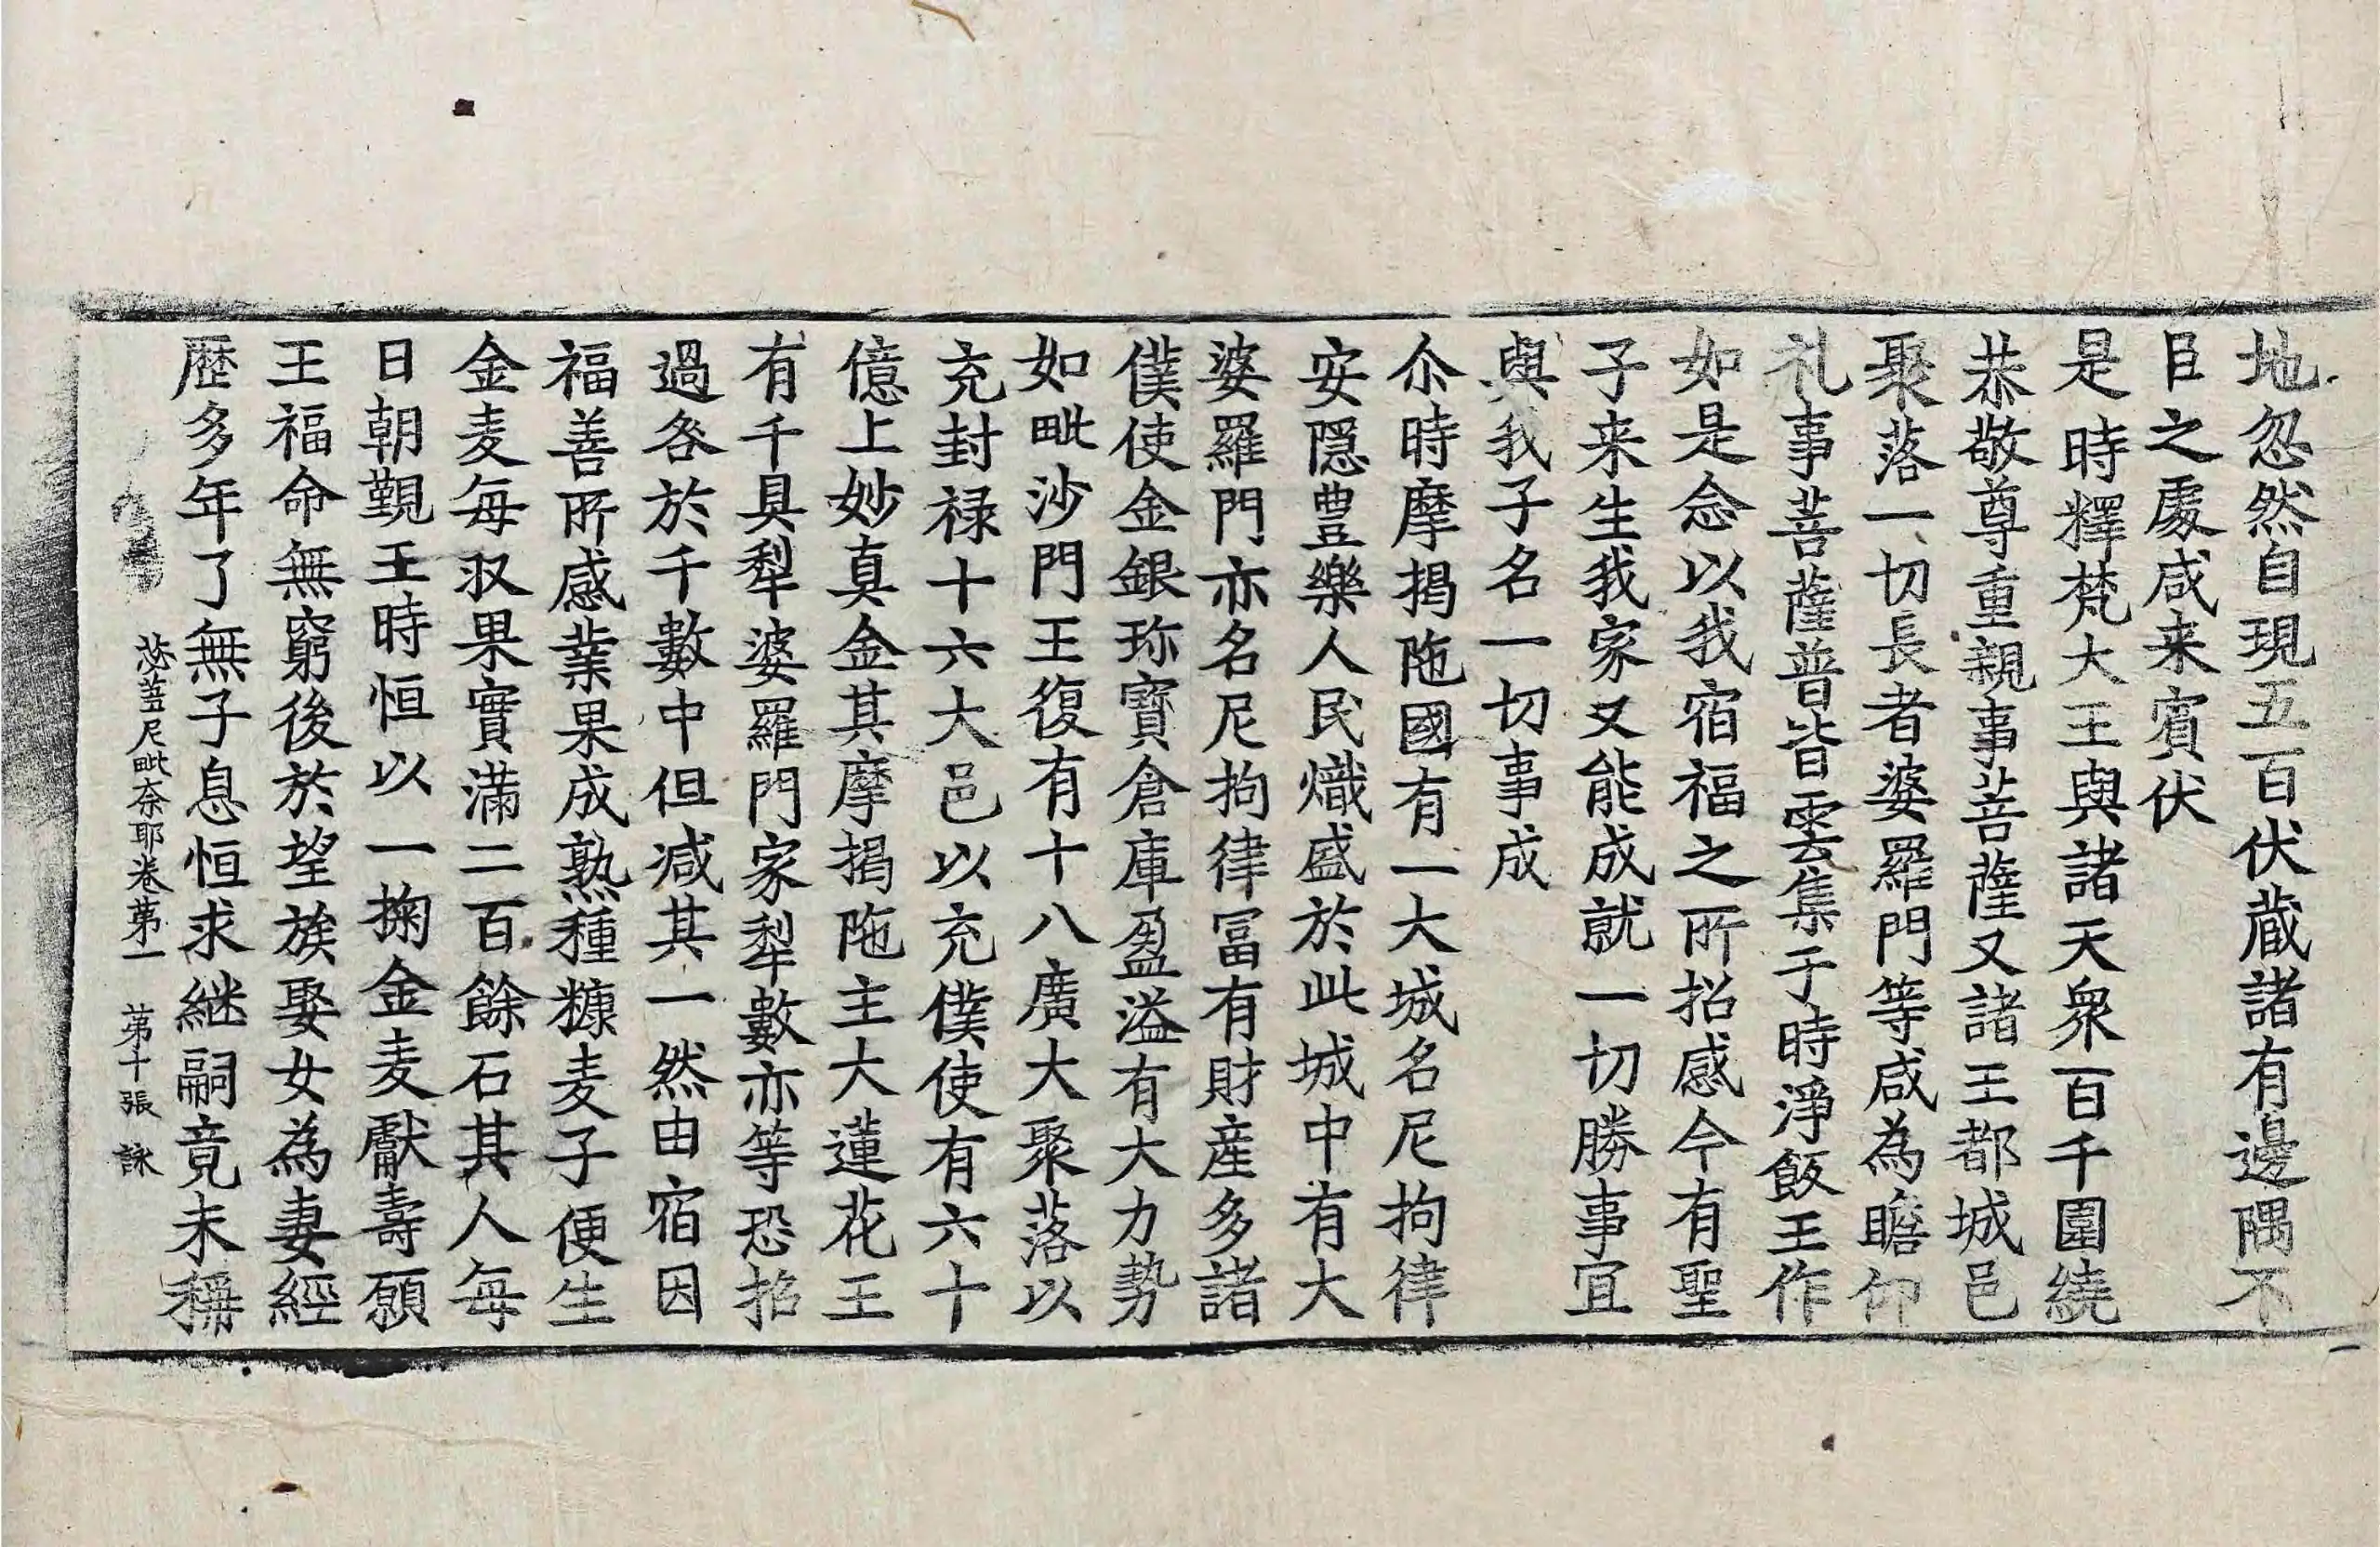 地忽然自現五百伏蔵諸有邊隅不
臣之處咸来賓伏
是時釋梵大王與諸天衆百千圍繞
恭敬尊重親事菩薩又諸王都城邑
聚落一切長者婆羅門等咸為瞻仰
礼事菩薩普皆雲集于時淨飯王作
如是念以我宿福之所招感今有聖
子来生我家又能成就一切勝事宜
與我子名一切事成
尒時摩揭陁國有一大城名尼拘律
安隱豊樂人民熾盛於此城中有大
婆羅門亦名尼拘律冨有財産多諸
僕使金銀珎寶倉庫盈溢有大力勢
如毗沙門王復有十八廣大聚落以
充封禄十六大邑以充僕使有六十
億上妙真金其摩揭陁主大蓮花王
有千具犁婆羅門家犁數亦等恐招
過咎於千數中但減其一然由宿因
福善所感業果成熟種糠麦子便生
金麦每収果實滿二百餘石其人每
日朝覲王時恒以一掬金麦獻壽願
王福命無窮後於望族娶女為妻經
歴多年了無子息恒求継嗣竟未稱
苾蒭尼毗奈耶卷苐一 苐十張 詠